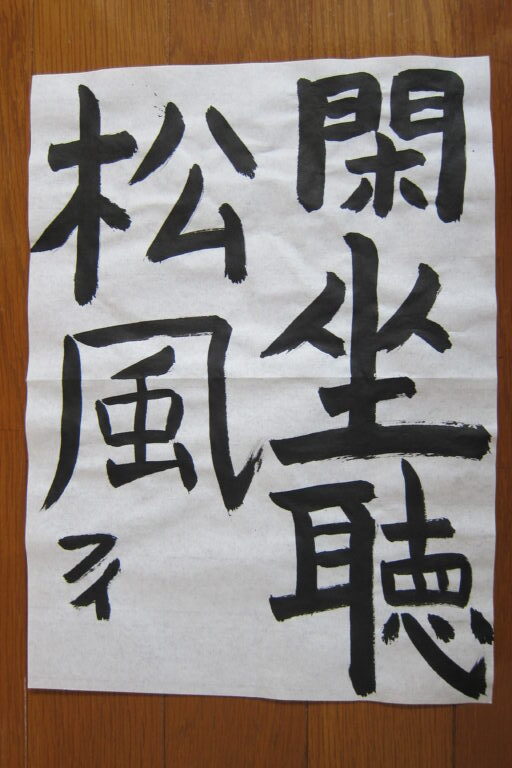 閑坐聴
松風
ライ